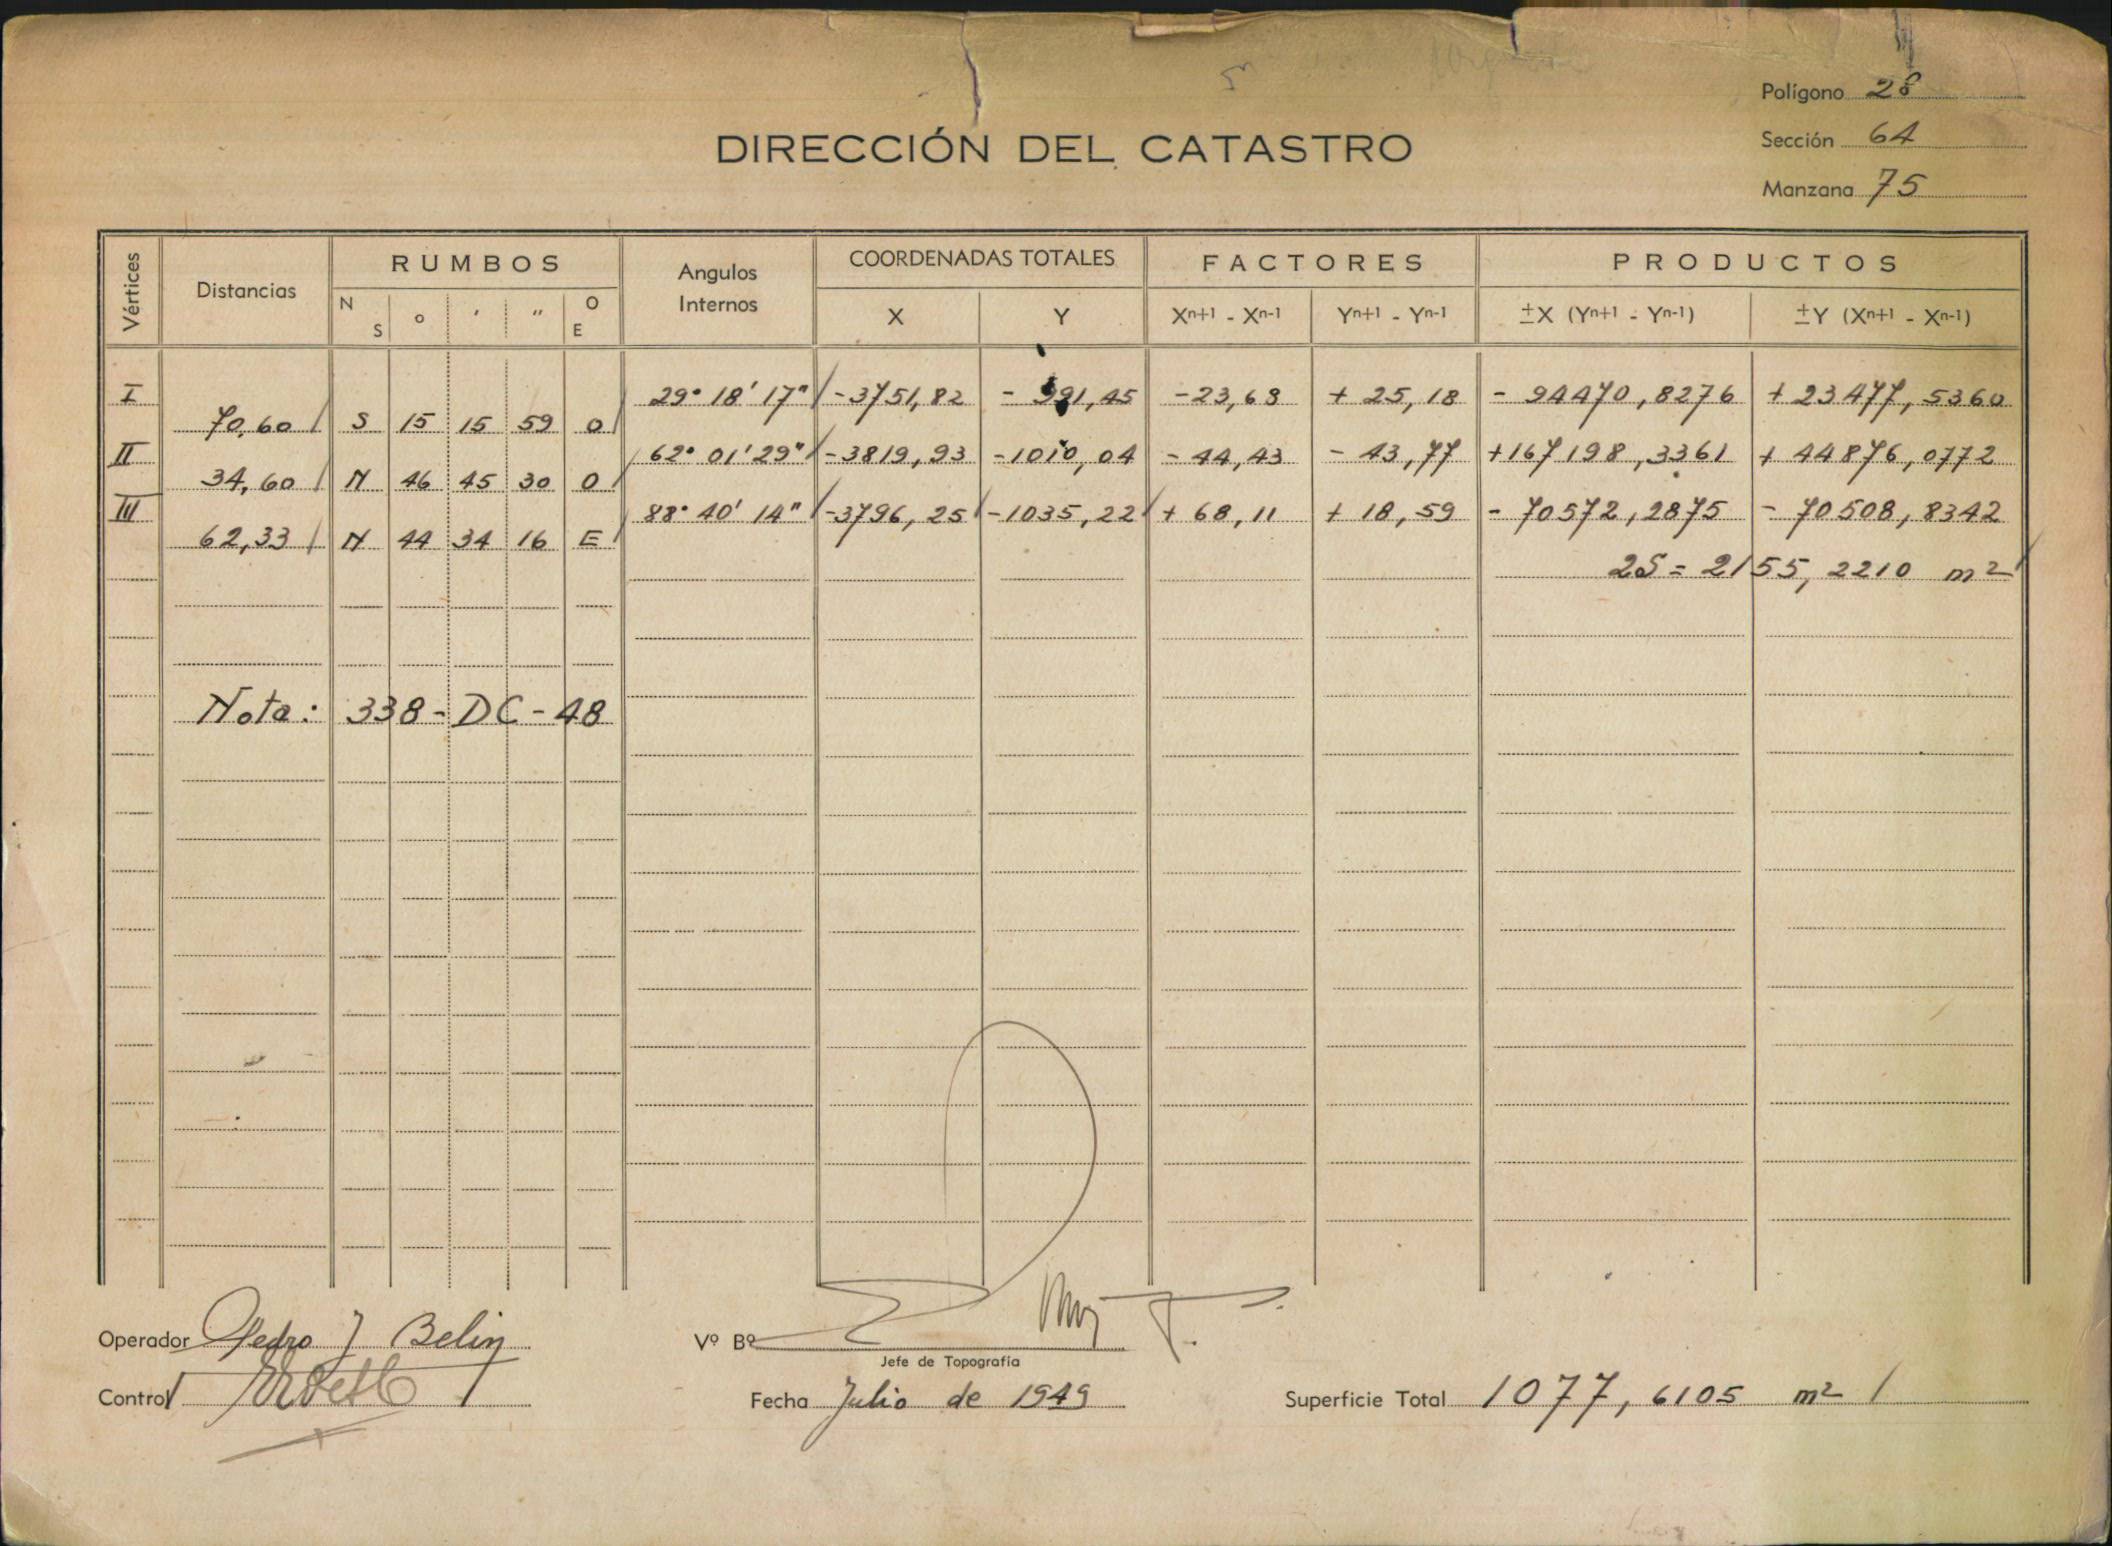 Polígono 28
DIRECCIÓN DEL CATASTRO
Sección 64
Manzana 75
Vértices Distancias RUMBOS N S ° ' " O E Angulos Internos COORDENADAS TOTALES X Y FACTORES Xⁿ⁺¹ - Xⁿ⁻¹ Yⁿ⁺¹ - Yⁿ⁻¹ PRODUCTOS ±X (Yⁿ⁺¹ - Yⁿ⁻¹) ±Y (Xⁿ⁺¹ - Xⁿ⁻¹)
I 29° 18' 17" -3751,82 - 991,45 -23,68 + 25,18 - 94470,8276 + 23477,5360
70,60 S 15 15 59 O
II 62° 01' 29" -3819,93 -1010,04 - 44,43 - 43,77 +167198,3361 + 44876,0772
34,60 N 46 45 30 O
III 88° 40' 14" -3796,25 -1035,22 + 68,11 + 18,59 - 70572,2875 - 70508,8342
62,33 N 44 34 16 E
2S = 2155,2210 m²
Nota: 338-DC-48
Operador Pedro J Belin
Vº Bº
Jefe de Topografía
Control
Fecha Julio de 1949
Superficie Total 1077,6105 m²